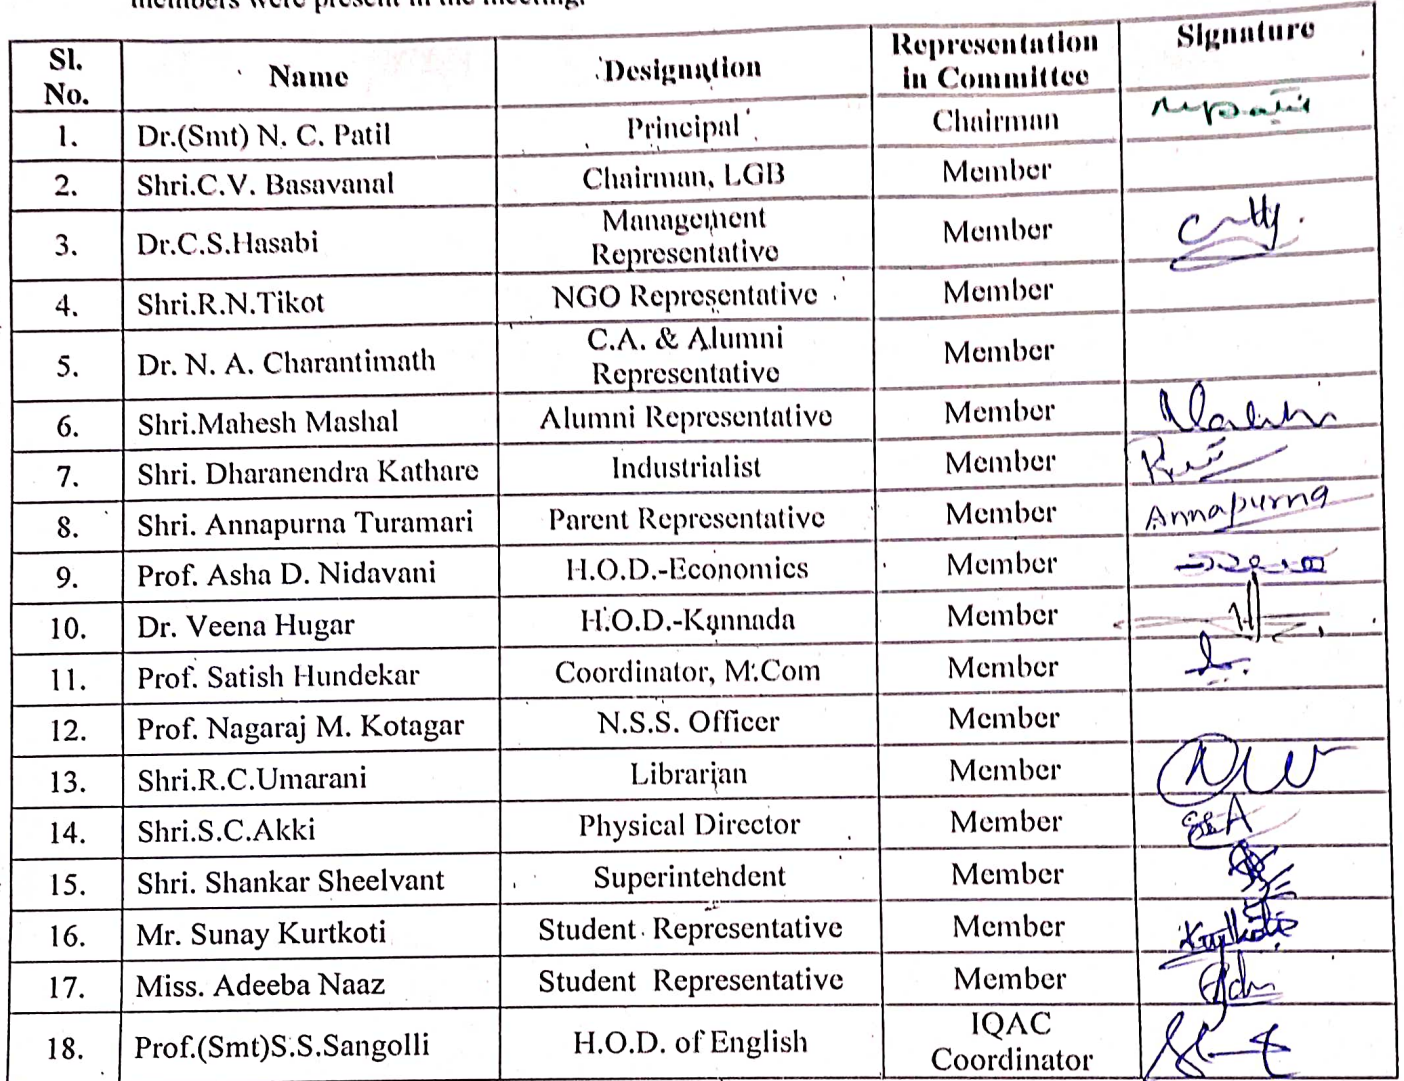 members were present in the meeting.
Sl. No. Name Designation Representation in Committee Signature
1. Dr.(Smt) N. C. Patil Principal Chairman
2. Shri.C.V. Basavanal Chairman, LGB Member
3. Dr.C.S.Hasabi Management Representative Member
4. Shri.R.N.Tikot NGO Representative Member
5. Dr. N. A. Charantimath C.A. & Alumni Representative Member
6. Shri.Mahesh Mashal Alumni Representative Member
7. Shri. Dharanendra Kathare Industrialist Member
8. Shri. Annapurna Turamari Parent Representative Member Annapurna
9. Prof. Asha D. Nidavani H.O.D.-Economics Member
10. Dr. Veena Hugar H.O.D.-Kannada Member
11. Prof. Satish Hundekar Coordinator, M.Com Member
12. Prof. Nagaraj M. Kotagar N.S.S. Officer Member
13. Shri.R.C.Umarani Librarian Member
14. Shri.S.C.Akki Physical Director Member
15. Shri. Shankar Sheelvant Superintendent Member
16. Mr. Sunay Kurtkoti Student Representative Member
17. Miss. Adeeba Naaz Student Representative Member
18. Prof.(Smt)S.S.Sangolli H.O.D. of English IQAC Coordinator